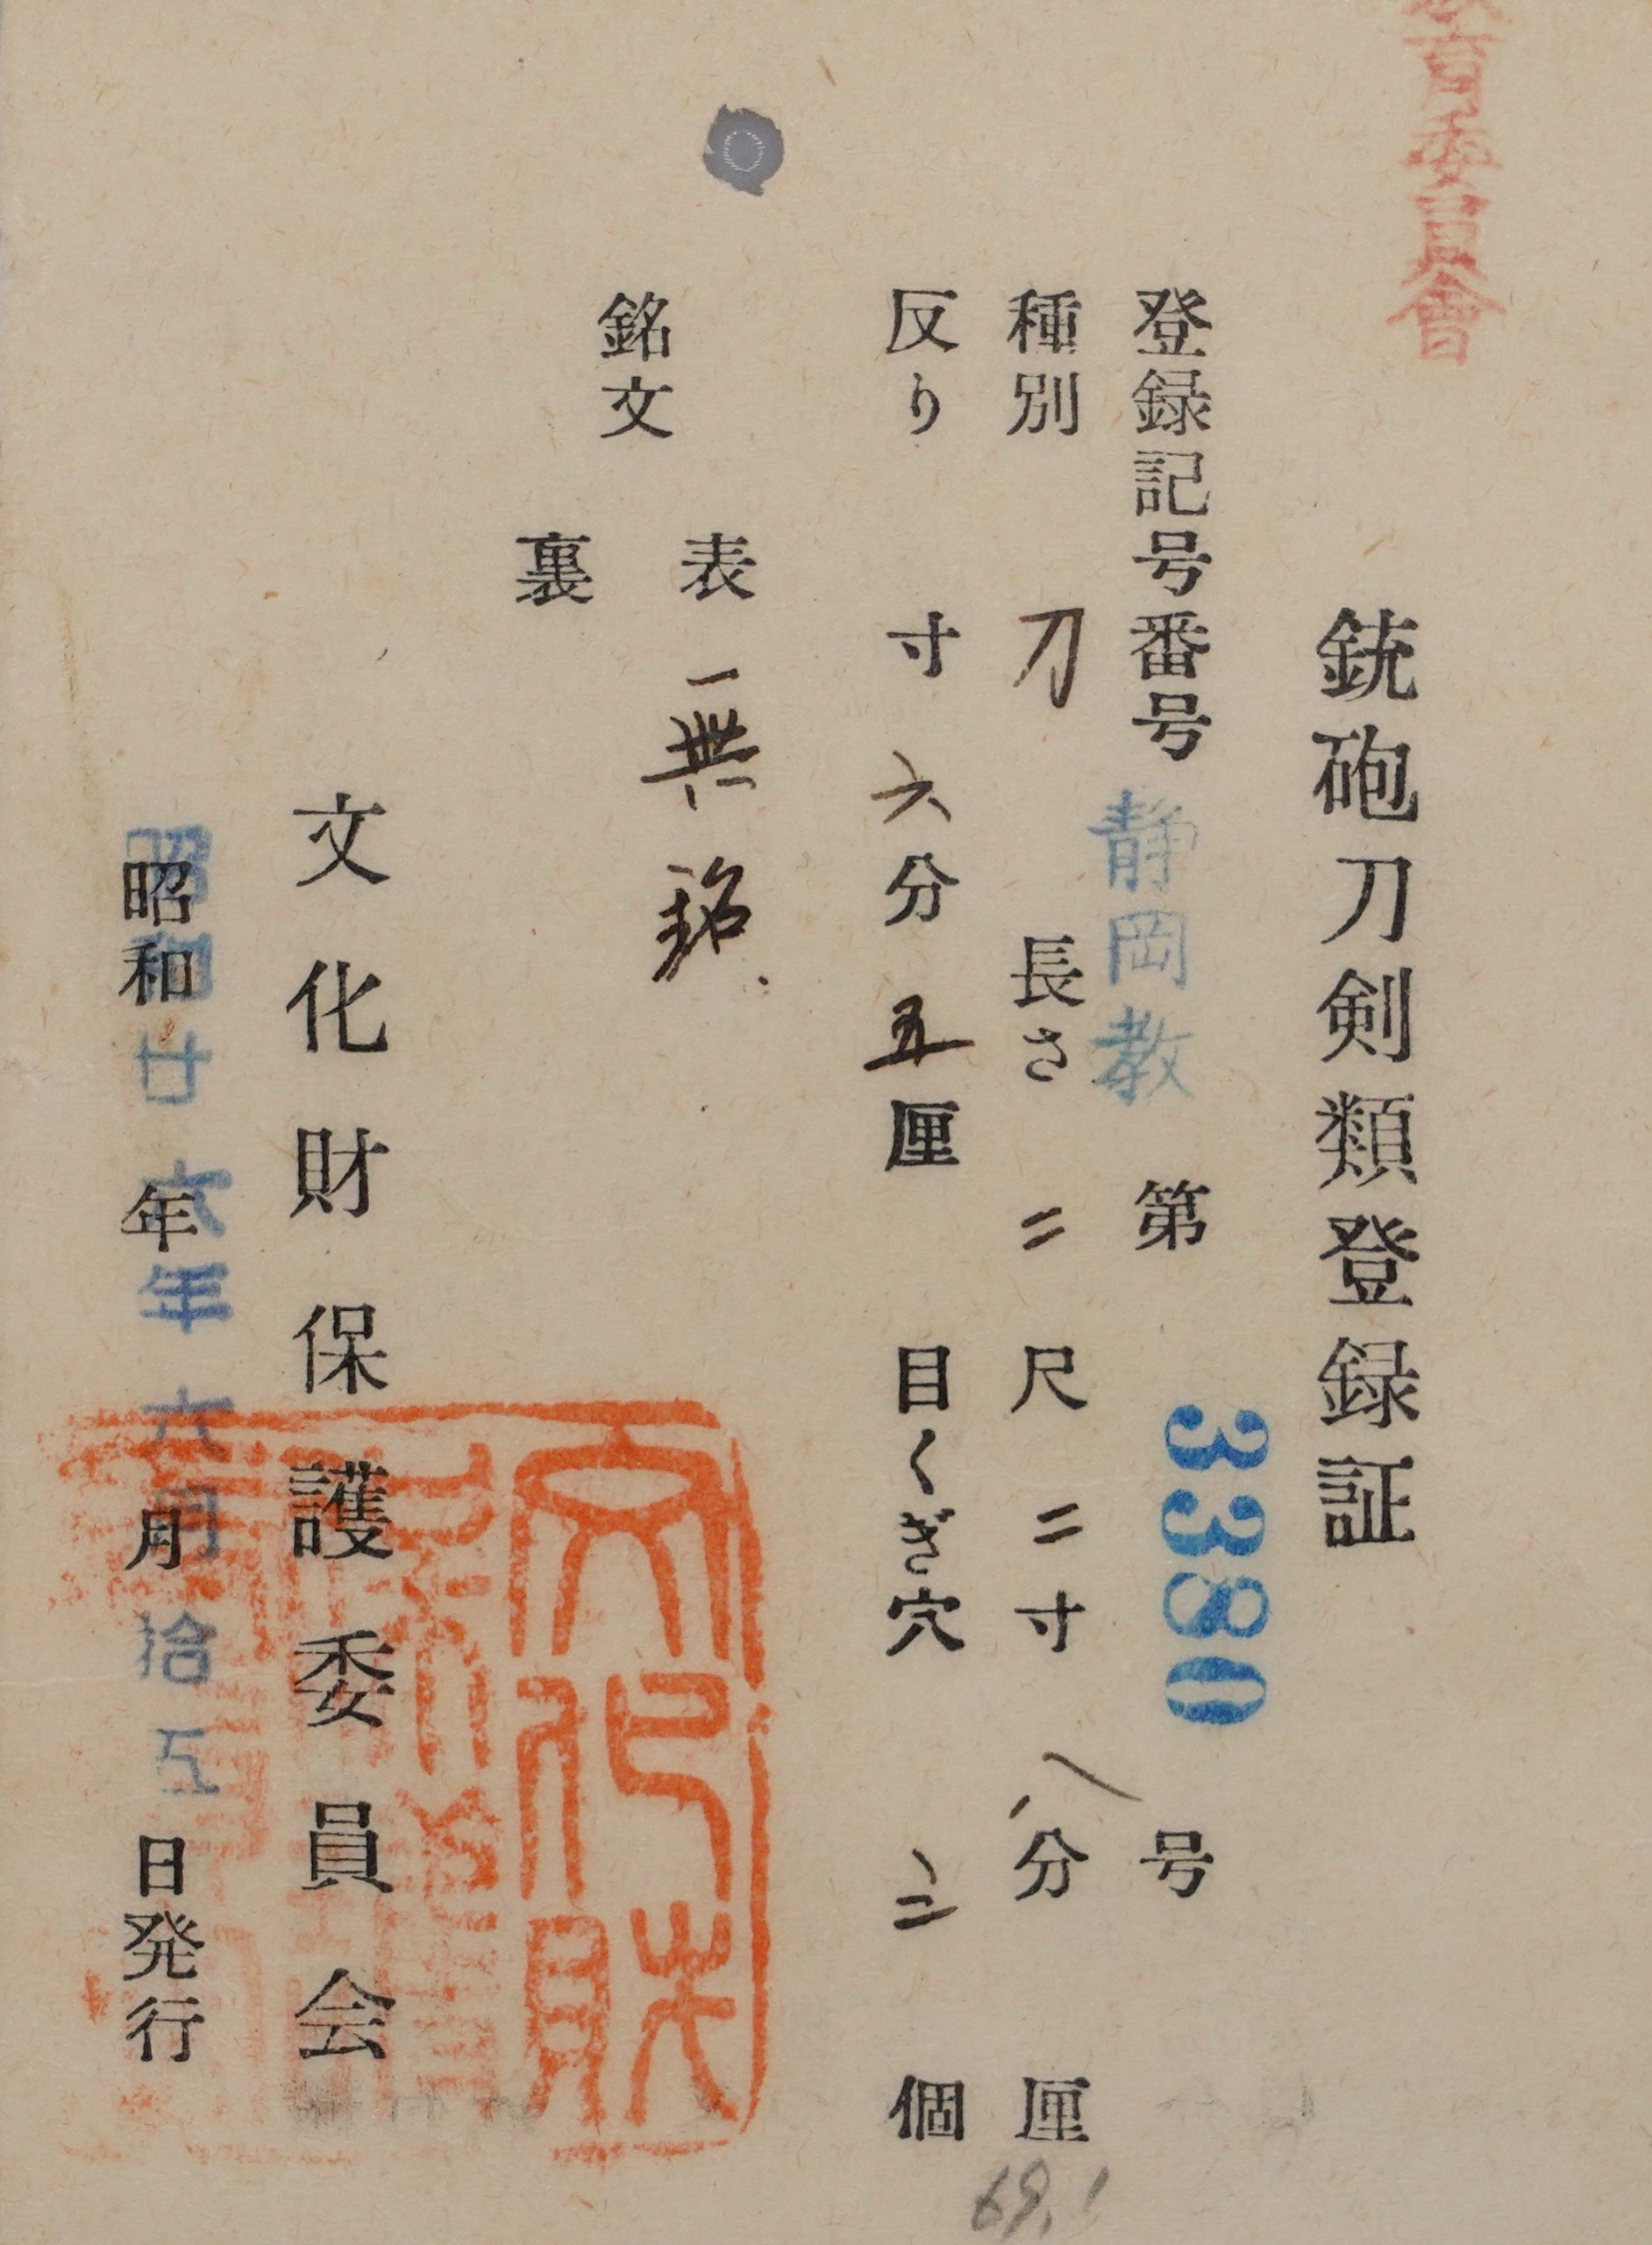 育委員會
銃砲刀剣類登録証
登録記号番号 静岡教 第 3380 号
種別 刀 長さ 二尺二寸八分 厘
反り 寸六分五厘 目くぎ穴 二個
銘文
表 無銘
裏
文化財保護委員会
昭和 年 月 日発行
昭和廿六年六月拾五
文化財
69.1